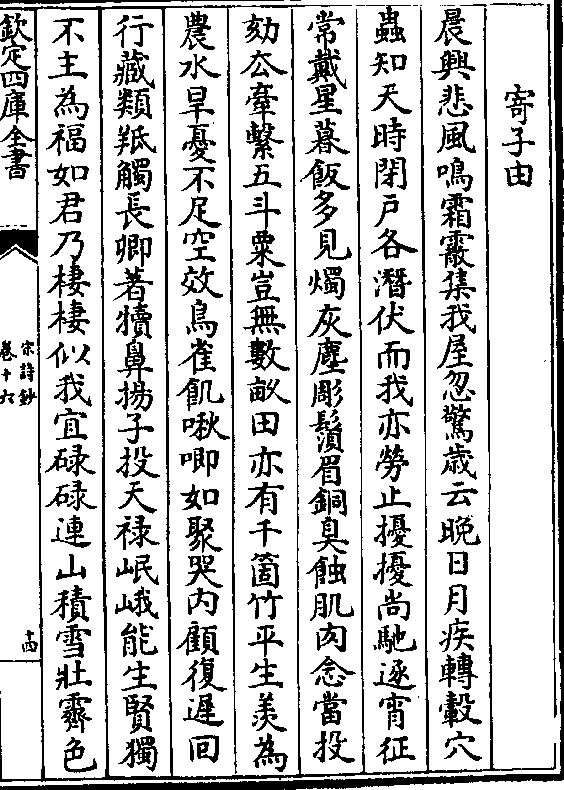 寄子由
晨興悲風鳴霜霰集我屋忽驚歲云晚日月疾轉轂穴
蟲知天時閉戶各潛伏而我亦勞止擾擾尚馳逐宵征
常戴星暮飯多見燭灰塵彫鬢眉銅臭蝕肌肉念當投
劾公牽繫五斗粟豈無數畝田亦有千箇竹平生羨為
農水旱憂不足空效鳥雀飢啾唧如聚哭内顧復遲回
行藏類羝觸長卿著犢鼻揚子投天禄岷峨能生賢獨
不主為福如君乃棲棲似我宜碌碌連山積雪壯霽色
欽定四庫全書
宋詩鈔
卷十六
十四